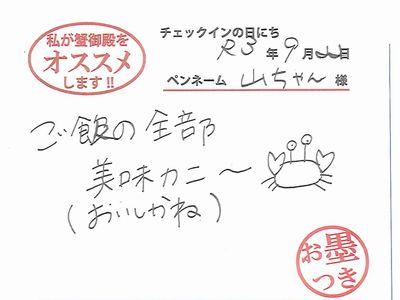 私が蟹御殿を
オススメ
します!!
チェックインの日にち
R3年9月 日
ペンネーム 山ちゃん 様
ご飯の全部
美味カニ〜
(おいしかね)
お墨
つき